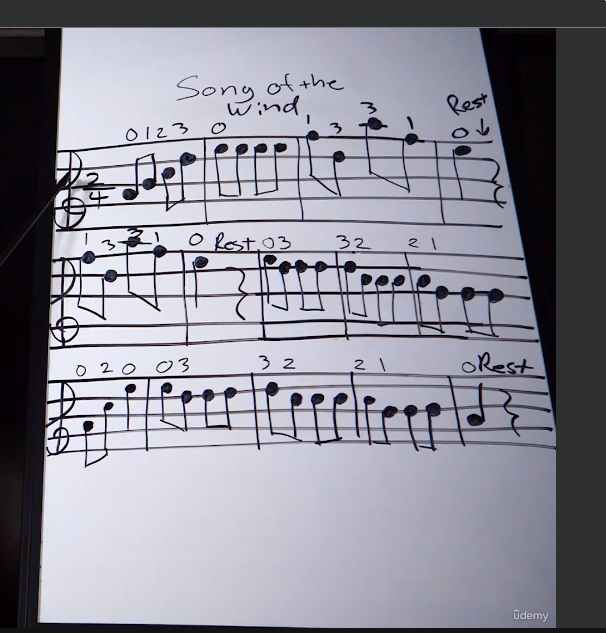 Song of the
Wind
Rest
0 1 2 3 0 1 3 3 1 0 ↓
2
4
1 3 3 1 0 Rest 0 3 3 2 2 1
0 2 0 0 3 3 2 2 1 0 Rest
ûdemy